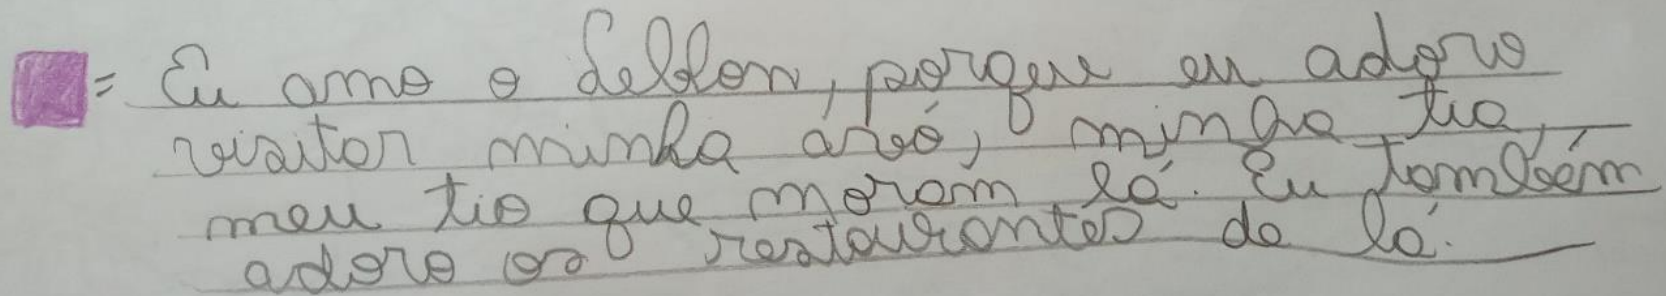 = Eu amo o Leblon, porque eu adoro
visitar minha ávó, minha tia,
meu tio que moram lá. Eu também
adoro os restaurantes de lá.